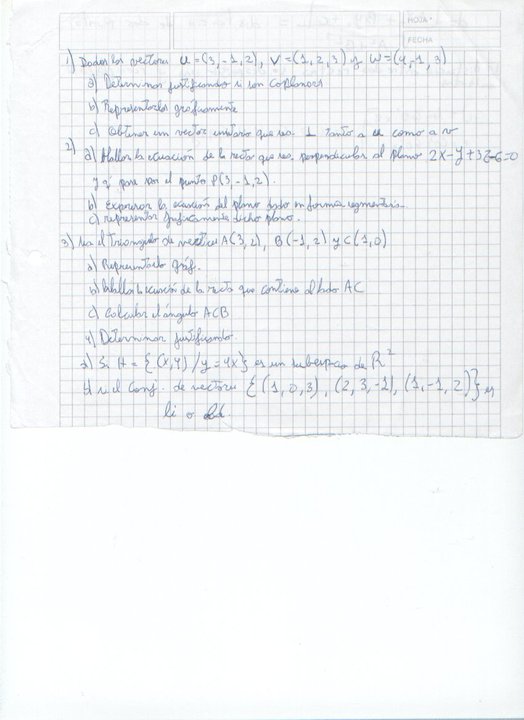 HOJA
FECHA
1) Dados los vectores u=(3,-1,2), v=(1,2,3) y w=(4,-1,3)
a) Determinar justificando si son coplanares
b) Representarlos gráficamente
c) Obtener un vector unitario que sea ⊥ tanto a u como a v
2) a) Hallar la ecuación de la recta que sea perpendicular al plano 2x-y+3z-6=0
y q' pase por el punto P(3,-1,2).
b) Expresar la ecuación del plano dado en forma segmentaria.
c) representar gráficamente dicho plano.
3) sea el triangulo de vertices A(3,2), B(-1,2) y C(1,0)
a) Representarlo gráf.
b) Hallar la ecuación de la recta que contiene al lado AC
c) Calcular el ángulo ACB
4) Determinar justificando
a) Si H = {(x,y) / y=4x} es un subespacio de R²
b) si el conj. de vectores {(1,0,3), (2,3,-1), (1,-1,2)} es
li o ld.